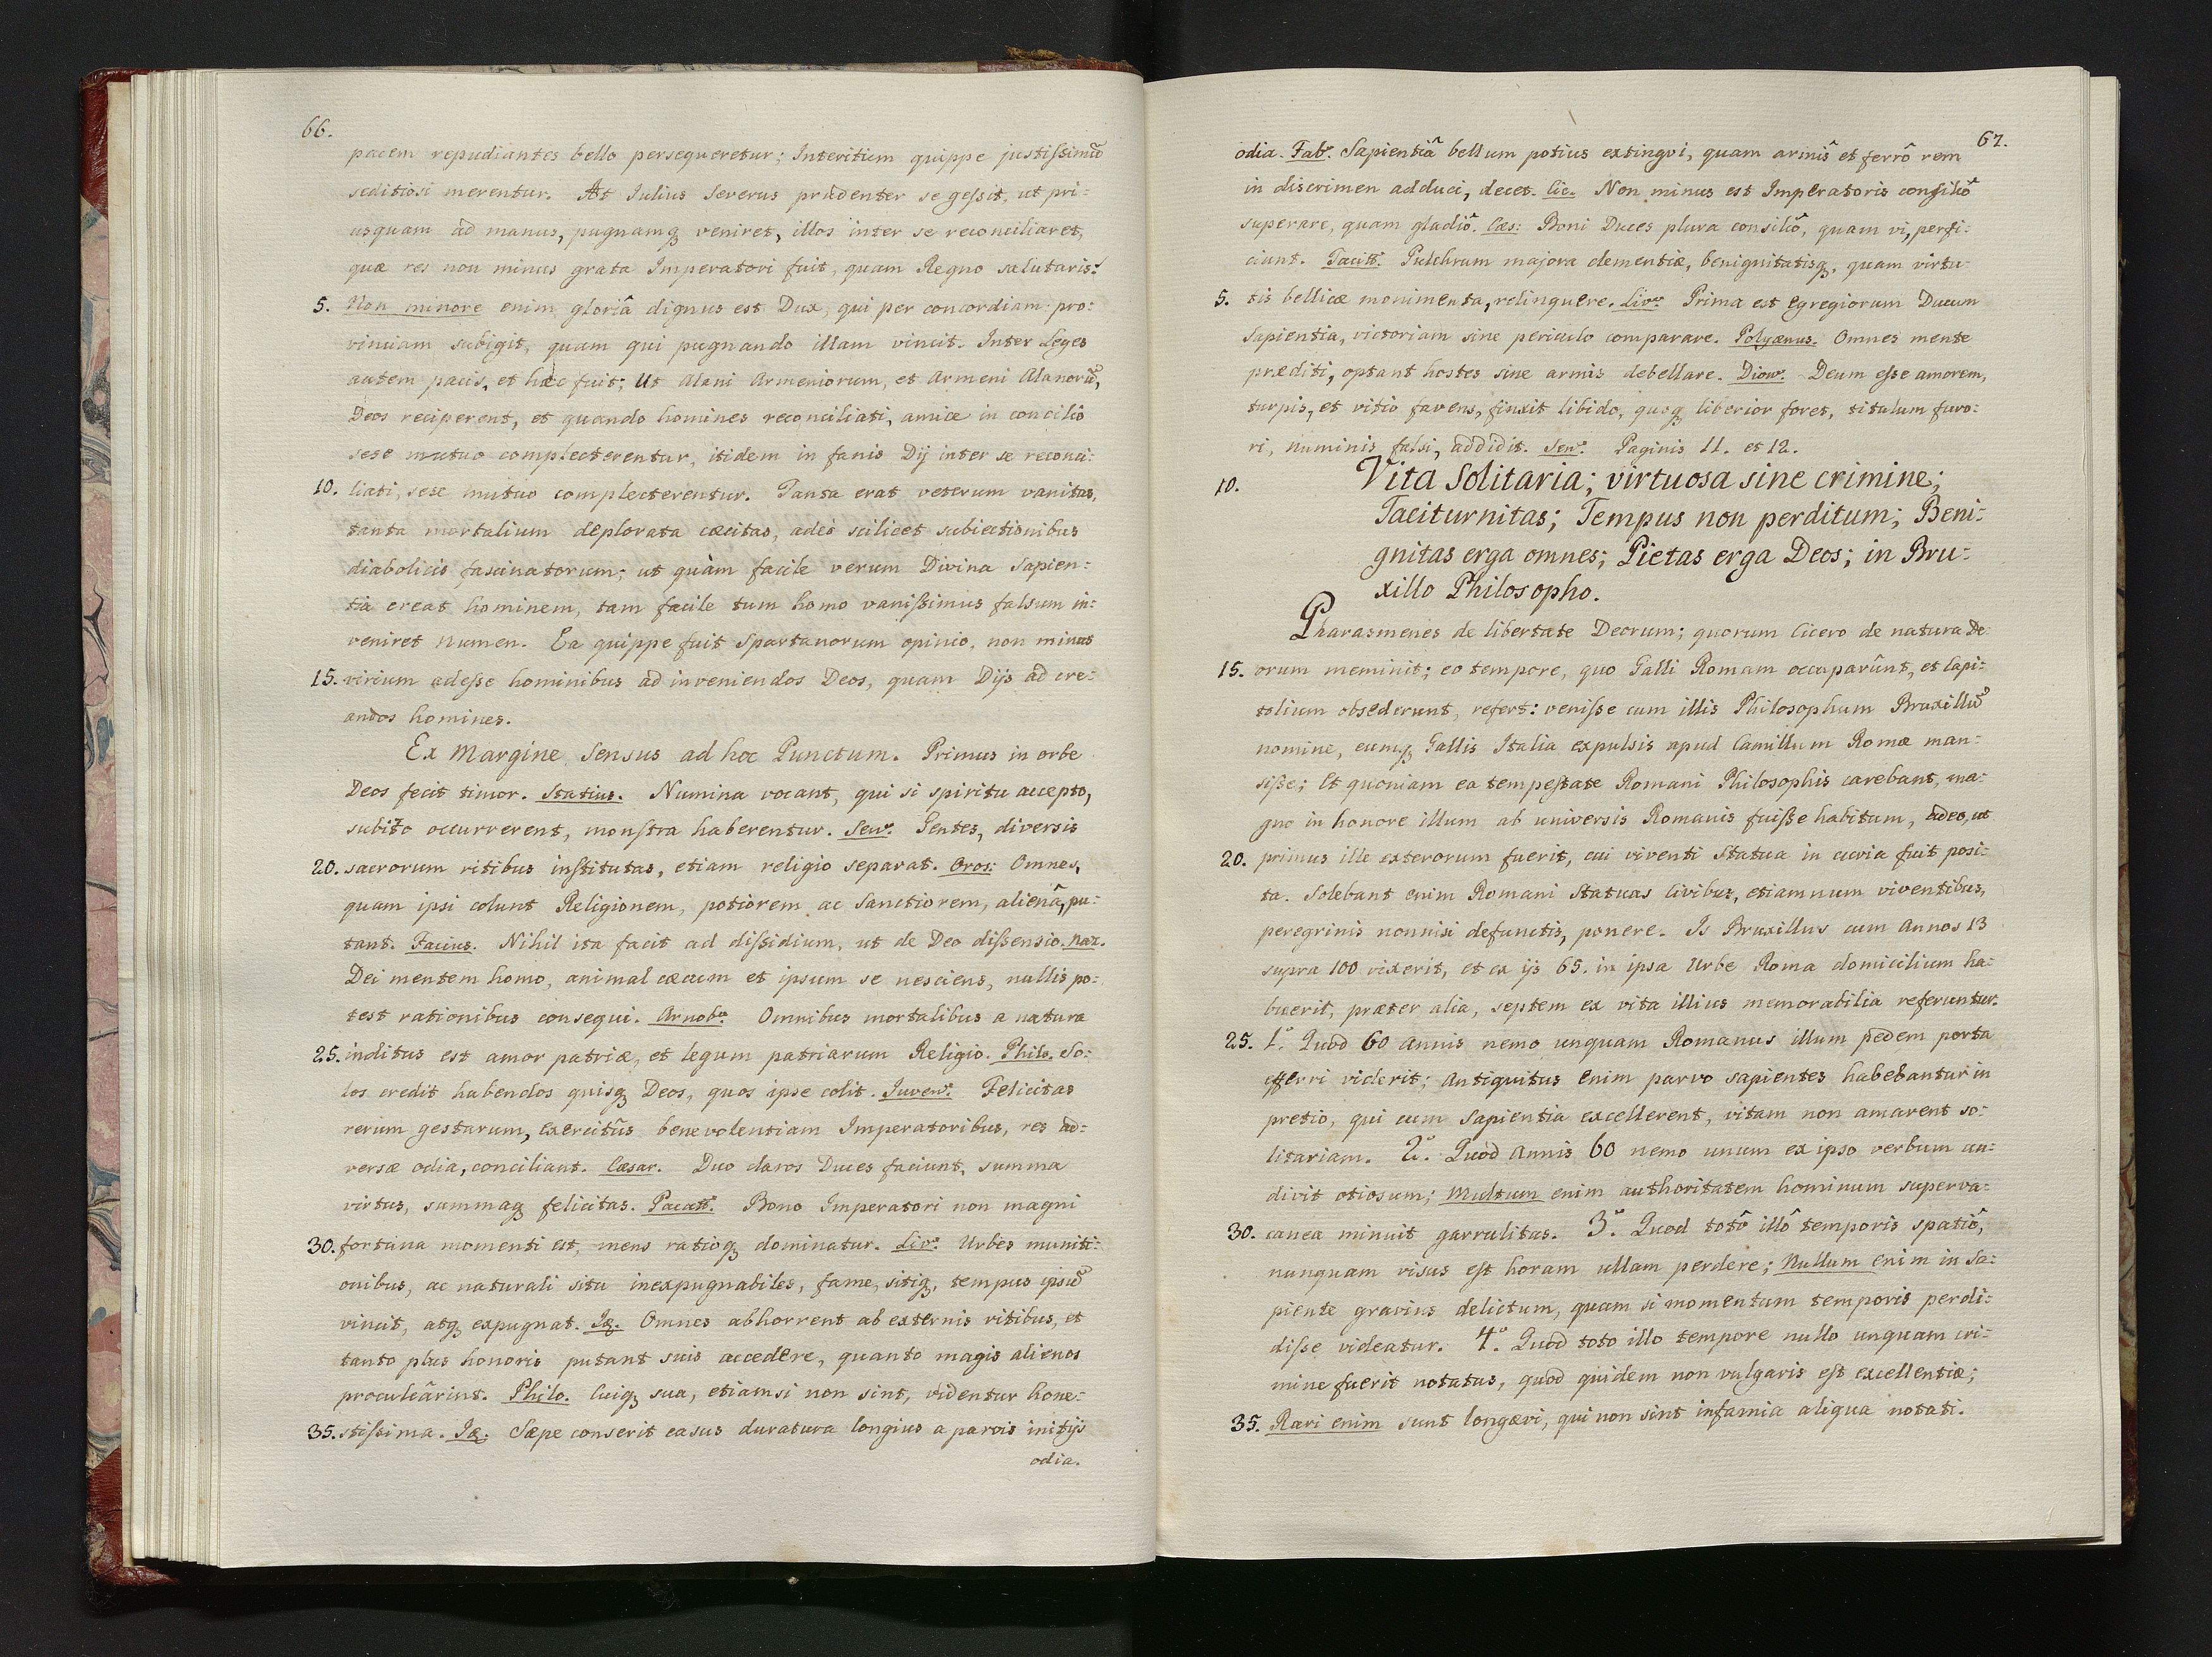 66.
pacem repudiantes bello persequeretur; Interitum quippe justissimū
seditiosi merentur. At Iulius Severus prudenter se gessit, ut pri:
usquam ad manus, pugnamq̨ veniret, illos inter se reconciliaret,
quæ res non minus grata Imperatori fuit, quam Regno salutaris.
5. Non minore enim gloriâ dignus est Dux, qui per concordiam pro:
vinciam subigit, quam qui pugnando illam vincit. Inter Leges
autem pacis, et hæc fuit; Ut Alani Armeniorum, et Armeni Alanorū,
Deos reciperent, et quando homines reconciliati, amice in conciliô
sese mutuo complecterentur, itidem in fanis Dij inter se reconci:
10. liati, sese mutuo complecterentur. Tanta erat veterum vanitas,
tanta mortalium deplorata cæcitas, adeò scilicet subiectionibus
diabolicis fascinatorum; ut quàm facile verum Divina Sapien:
tia creat hominem, tam facile tum homo vanissimus falsum in:
veniret Numen. Ea quippe fuit Spartanorum opinio, non minus
15. virium adesse hominibus ad inveniendos Deos, quam Dijs ad cre:
andos homines.
Ex Margine Sensus ad hoc Punctum. Primus in orbe
Deos fecit timor. Statius. Numina vocant, qui si spiritu accepto,
subito occurrerent, monstra haberentur. Senr. Gentes, diversis
20. sacrorum ritibus institutas, etiam religio separat. Oros: Omnes,
quam ipsi colunt Religionem, potiorem ac Sanctiorem, alienâ, pu:
tant. Facius. Nihil ita facit ad dissidium, ut de Deo dissensio. Naz.
Dei mentem homo, animal cæcum et ipsum se nesciens, nullis po:
test rationibus consequi. Arnobs. Omnibus mortalibus a natura
25. inditus est amor patriæ, et legum patriarum Religio. Philo. So:
los credit habendos quisq̨ Deos, quos ipse colit. Iuven. Felicitas
rerum gestarum, exercitûs benevolentiam Imperatoribus, res ad:
versæ odia, conciliant. Cæsar. Duo claros Duces faciunt, summa
virtus, summaq̨ felicitas. Pacatt. Bono Imperatori non magni
30. fortuna momenti est, mens ratioq̨ dominatur. Livs. Urbes muniti:
onibus, ac naturali situ inexpugnabiles, fame, sitiq̨, tempus ipsū
vincit, atq̨ expugnat. Iq. Omnes abhorrent ab externis ritibus, et
tanto plus honoris putant suis accedere, quanto magis alienos
proculcârint. Philo. Cuiq̨ sua, etiamsi non sint, videntur hone:
35. stissima. Iq. Sæpe conserit casus duratura longius a parvis initijs
odia.
67.
odia. Fabs. Sapientiâ bellum potius extingui, quam armis et ferrô rem
in discrimen adduci, decet. Cic. Non minus est Imperatoris consiliô
superare, quam gladiô. Cæs: Boni Duces plura consiliô, quam vi, perfi:
ciunt. Tacitt. Pulchrum majora clementiæ, benignitatisq̨, quam virtu:
5. tis bellicæ monimenta, relinquere. Livs. Prima est egregiorum Ducum
Sapientia, victoriam sine periculo comparare. Polyænus. Omnes mente
præditi, optant hostes sine armis debellare. Dion. Deum esse amorem,
turpis, et vitio favens, finxit libido, quoq̨ liberior foret, titulum furo:
ri, numinis falsi, addidit. Sen. Paginis 11. et 12.
10. Vita Solitaria; virtuosa sine crimine;
Taciturnitas; Tempus non perditum; Beni:
gnitas erga omnes; Pietas erga Deos; in Bru:
xillo Philosopho.
Pharasmenes de libertate Deorum; quorum Cicero de natura De:
15. orum meminit; eo tempore, quo Galli Romam occuparûnt, et Capi:
tolium obsederunt, refert: venisse cum illis Philosophum Bruxillū
nomine, eumq̨ Gallis Italia expulsis apud Camillum Romæ man:
sisse; Et quoniam ea tempestate Romani Philosophis carebant, ma:
gno in honore illum ab universis Romanis fuisse habitum, adeo, ut
20. primus ille exterorum fuerit, cui viventi Statua in curia fuit posi:
ta. Solebant enim Romani Statuas Civibus, etiamnum viventibus,
peregrinis nonnisi defunctis, ponere. Is Bruxillus cum Annos 13
supra 100 vixerit, et ex ijs 65. in ipsa Urbe Roma domicilium ha:
buerit, præter alia, septem ex vita illius memorabilia referuntur.
25. 1.° Quod 60 annis nemo unquam Romanus illum pedem porta
efferri viderit; Antiquitus enim parvo sapientes habebantur in
pretio, qui cum Sapientia excellerent, vitam non amarent so:
litariam. 2.° Quòd Annis 60 nemo unum ex ipso verbum au:
divit otiosum; Multum enim authoritatem hominum superva:
30. canea minuit garrulitas. 3.° Quod totô illô temporis spatiô,
nunquam visus est horam ullam perdere; Nullum enim in Sa:
piente gravius delictum, quam si momentum temporis perdi:
disse videatur. 4.° Quòd toto illo tempore nullo unquam cri:
mine fuerit notatus, quod quidem non vulgaris est excellentiæ;
35. Rari enim sunt longævi, qui non sint infamia aliqua notati.